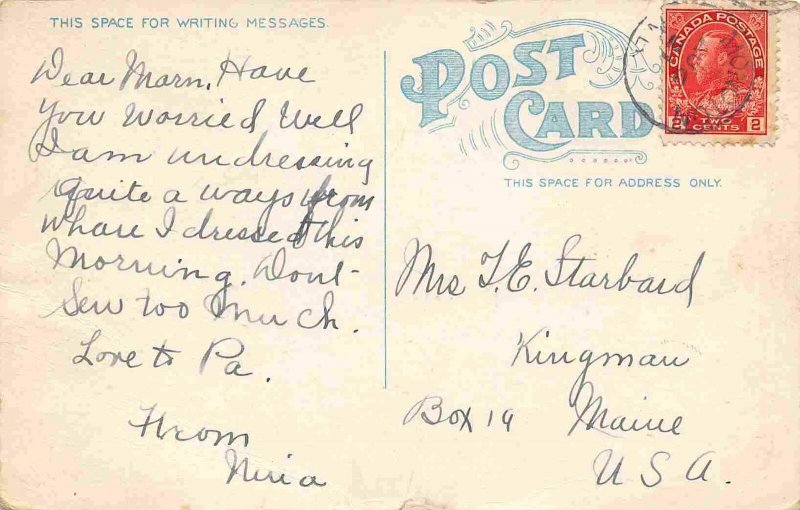 THIS SPACE FOR WRITING MESSAGES.
Dear Marn, Have
You Worried Well
I am undressing
Quite a ways from
Whare I dressed this
Morning. Dont
Sew too Much.
Love to Pa.
From
POST
CARD
CANADA POSTAGE
2 TWO CENTS 2
THIS SPACE FOR ADDRESS ONLY.
Mrs T. E. Starbard
Kingman
Box 19 Maine
U S A.